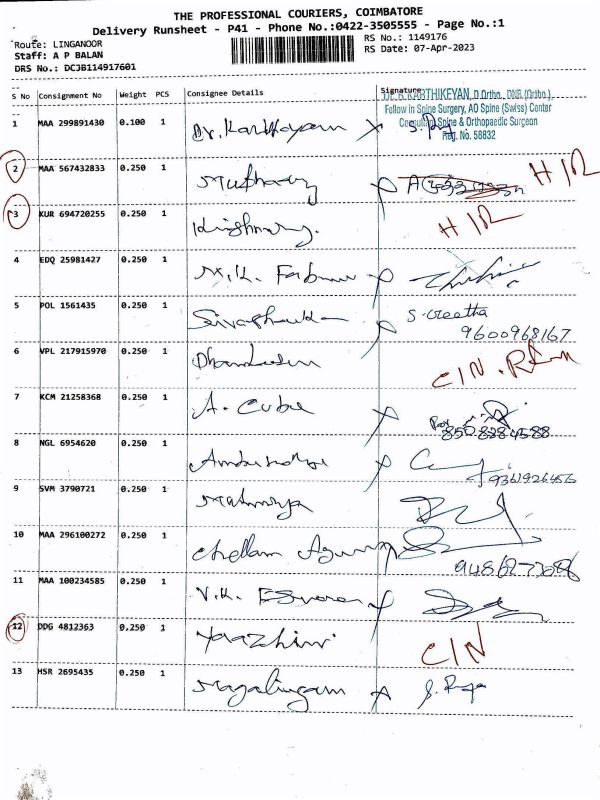 THE PROFESSIONAL COURIERS, COIMBATORE
Delivery Runsheet - P41 - Phone No.:0422-3505555 - Page No.:1
Route: LINGANOOR
RS No.: 1149176
Staff: A P BALAN
RS Date: 07-Apr-2023
DRS No.: DCJB114917601
S No Consignment No Weight PCS Consignee Details Signature
DR.B.KARTHIKEYAN, D.Ortho., DNB (Ortho.)
Fellow in Spine Surgery, AO Spine (Swiss) Center
Consultant Spine & Orthopaedic Surgeon
Reg. No. 58832
1 MAA 299891430 0.100 1 Dr. Karthikayan
2 MAA 567432833 0.250 1 H/R
3 KUR 694720255 0.250 1 H/R
4 EDQ 25981427 0.250 1 M.K.
5 POL 1561435 0.250 1 S. Geetha
9600968167
6 VPL 217915970 0.250 1 C/N.
7 KCM 21258368 0.250 1 A. Cube
8508284588
8 NGL 6954620 0.250 1
9361926456
9 SVM 3790721 0.250 1
10 MAA 296100272 0.250 1 Chellam
11 MAA 100234585 0.250 1 V.K. Eswaran
12 DDG 4812363 0.250 1 Yaazhini C/N
13 HSR 2695435 0.250 1 Magalingam S. Raja